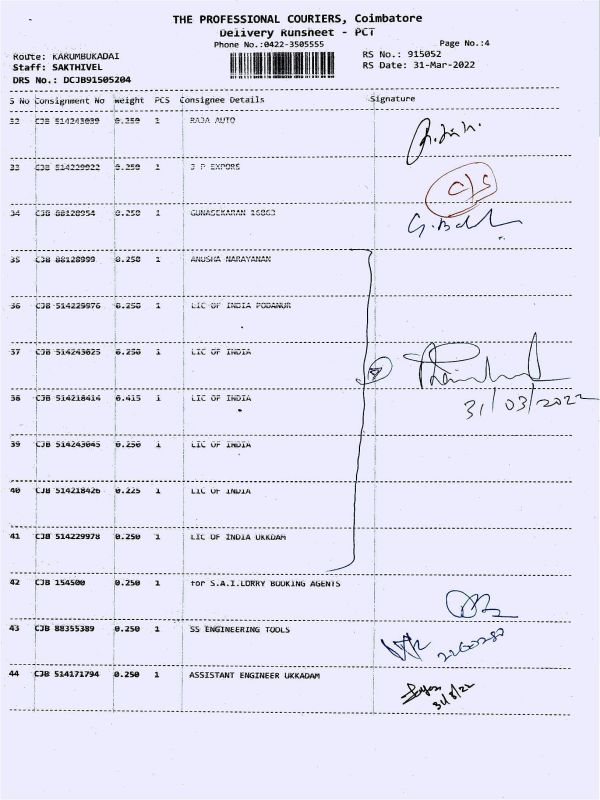 THE PROFESSIONAL COURIERS, Coimbatore
Delivery Runsheet - PCT
Phone No.:0422-3505555
Page No.:4
Route: KARUMBUKADAI
RS No.: 915052
Staff: SAKTHIVEL
RS Date: 31-Mar-2022
DRS No.: DCJB91505204
S No Consignment No Weight PCS Consignee Details Signature
32 CJB 514243039 0.250 1 RAJA AUTO
33 CJB 514229922 0.250 1 J P EXPORS
C/S
34 CJB 88128954 0.250 1 GUNASEKARAN 16863
35 CJB 88128999 0.250 1 ANUSHA NARAYANAN
36 CJB 514229976 0.250 1 LIC OF INDIA PODANUR
37 CJB 514243025 0.250 1 LIC OF INDIA
38 CJB 514218414 0.415 1 LIC OF INDIA
31/03/2022
39 CJB 514243045 0.250 1 LIC OF INDIA
40 CJB 514218426 0.225 1 LIC OF INDIA
41 CJB 514229978 0.250 1 LIC OF INDIA UKKDAM
42 CJB 154500 0.250 1 for S.A.I.LORRY BOOKING AGENTS
43 CJB 88355389 0.250 1 SS ENGINEERING TOOLS
44 CJB 514171794 0.250 1 ASSISTANT ENGINEER UKKADAM
31/3/22